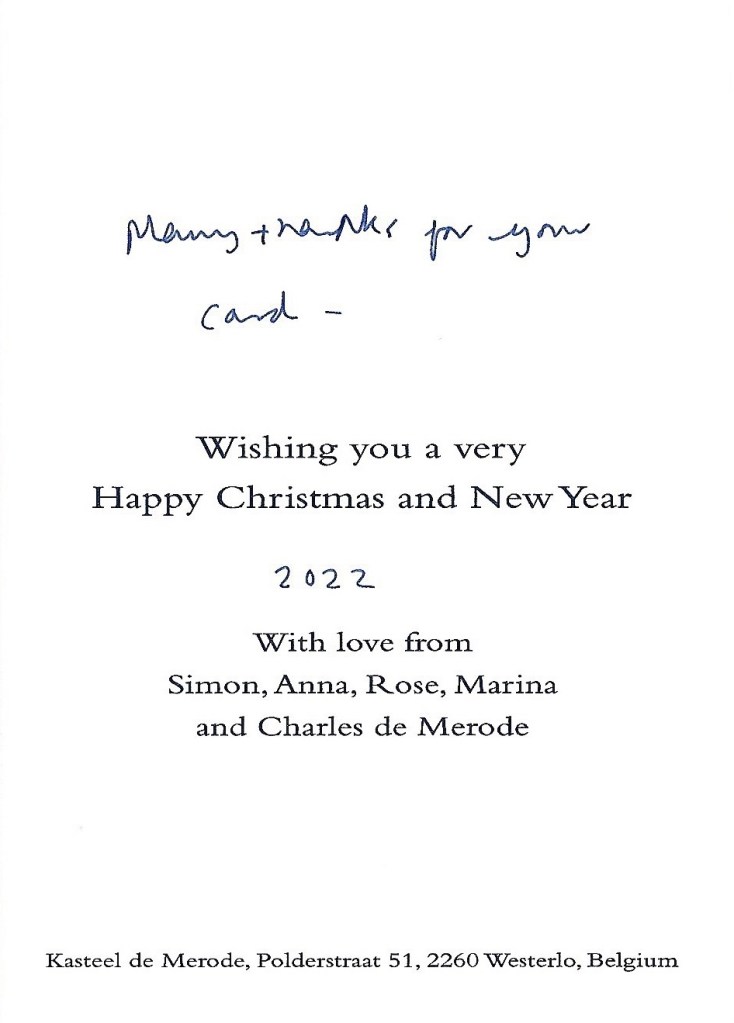 Many thanks for your
card -
Wishing you a very
Happy Christmas and New Year
2022
With love from
Simon, Anna, Rose, Marina
and Charles de Merode
Kasteel de Merode, Polderstraat 51, 2260 Westerlo, Belgium